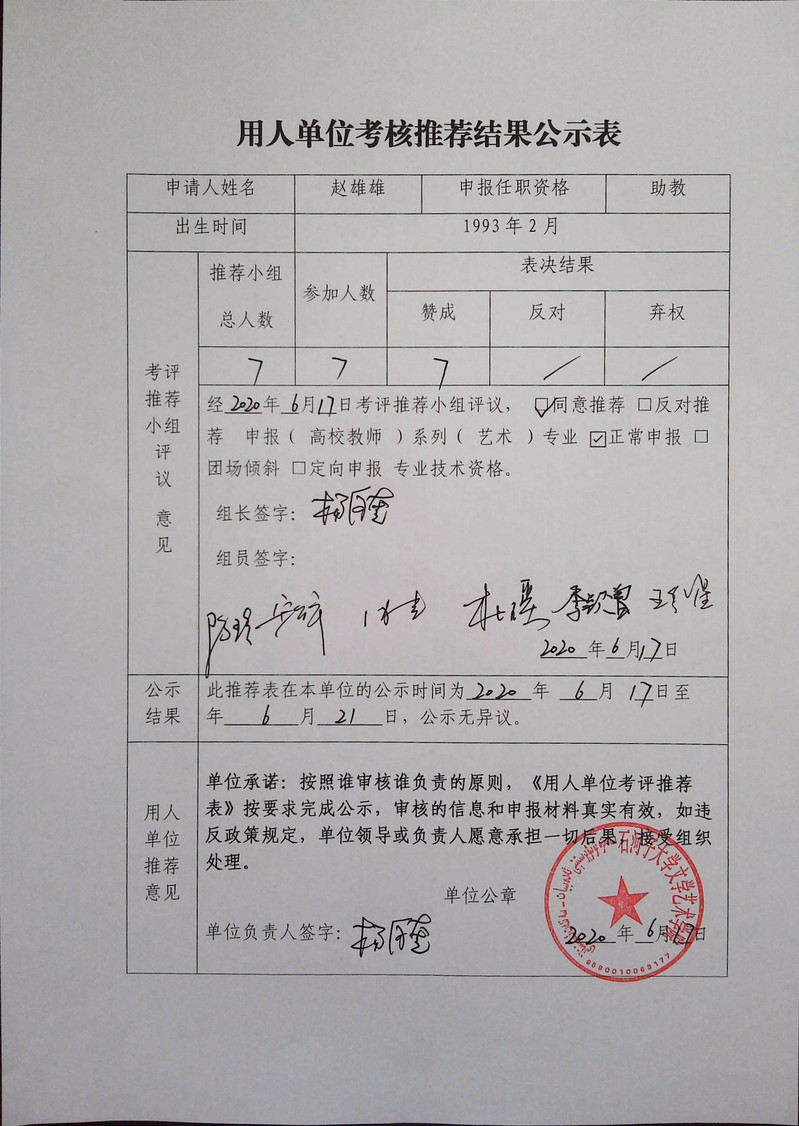 用人单位考核推荐结果公示表
申请人姓名 赵雄雄 申报任职资格 助教
出生时间 1993年2月
推荐小组总人数 参加人数 表决结果
赞成 反对 弃权
7 7 7 / /
考评推荐小组评议 意见
经2020年6月17日考评推荐小组评议，☑同意推荐 □反对推
荐 申报（ 高校教师 ）系列（ 艺术 ）专业 ☑正常申报 □
团场倾斜 □定向申报 专业技术资格。
组长签字：
组员签字：
2020年6月17日
公示结果
此推荐表在本单位的公示时间为2020年 6月 17日至
年 6 月 21 日，公示无异议。
用人单位推荐意见
单位承诺：按照谁审核谁负责的原则，《用人单位考评推荐
表》按要求完成公示，审核的信息和申报材料真实有效，如违
反政策规定，单位领导或负责人愿意承担一切后果，接受组织
处理。
单位公章
单位负责人签字：
2020年6月17日
石河子大学文学艺术学院
6590010063177